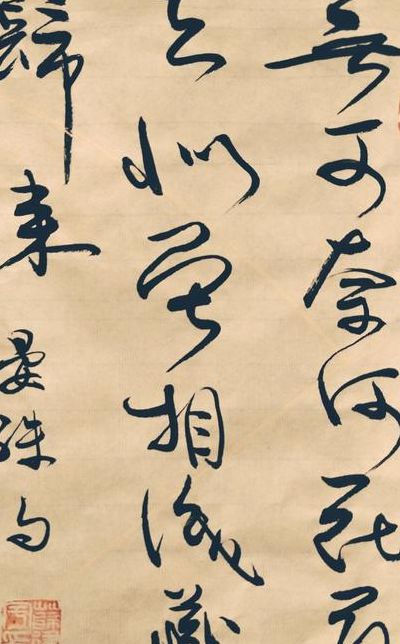 無可奈何花
去似曾相識燕
歸來 晏殊句